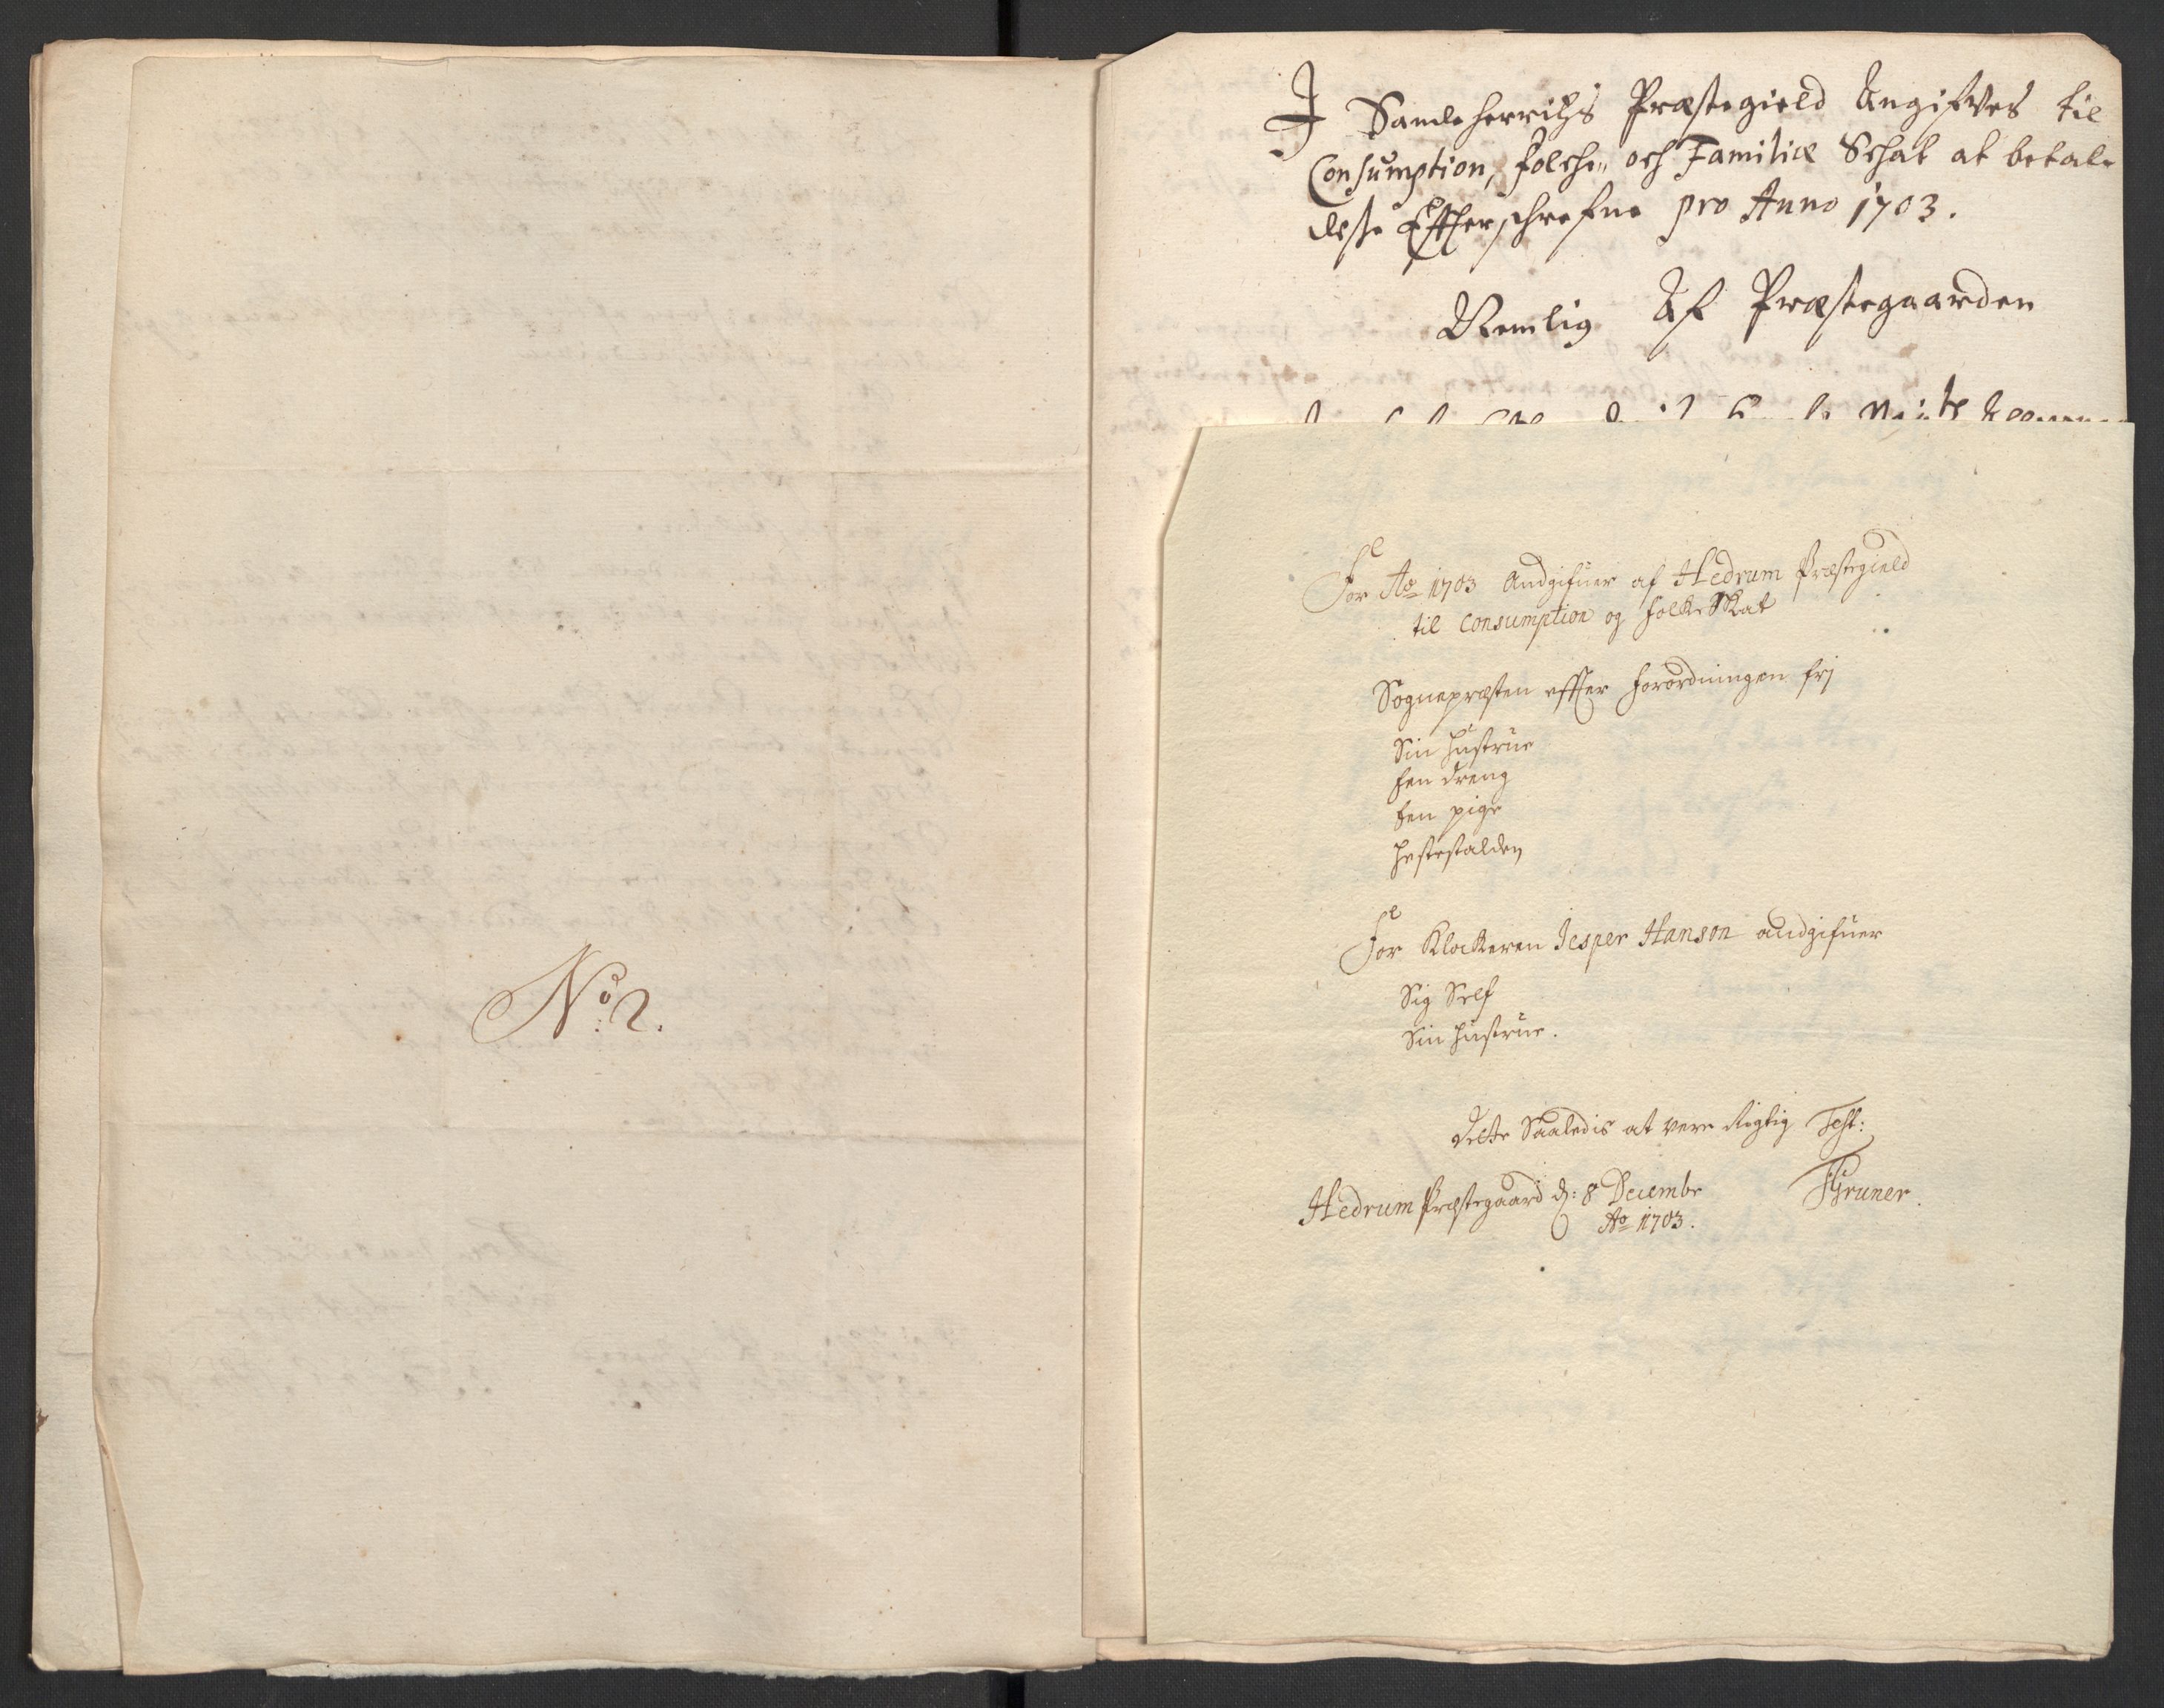 No: 2.
I Sandeherritzs Præstegield Angifves til
Consumption, folche- och Familiæ Schat at betale
desse Effterschrefne pro Anno 1703.
Nemlig Af Præstegaarden
For Ao 1703 Andgifuer af Hedrum Præstegield
til Consumption og folkeSkat
Sognepræsten effter forordningen frj
Sin hustrue
Een dreng
Een pige
hestestalden
For Klockeren Jesper Hanson andgifuer
Sig Self
Sin hustrue.
Dette Saaledis at vere Rigtig Test:
Hedrum Præstegaard d: 8 Decembr Gruner.
Ao 1703.